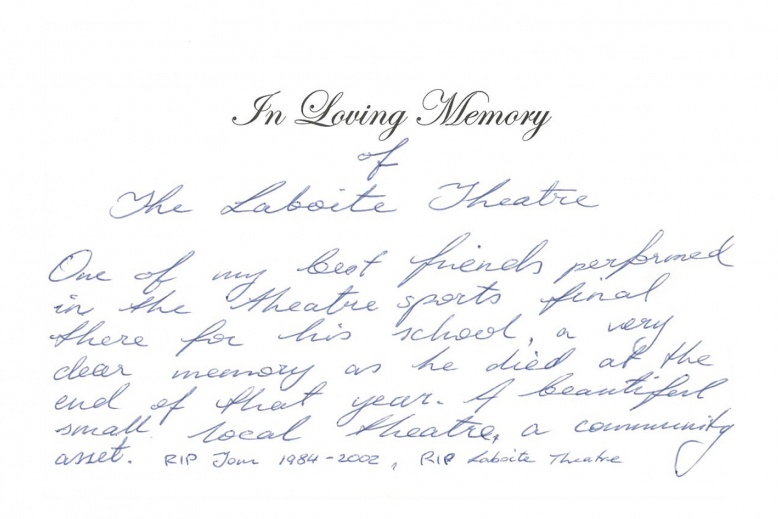 In Loving Memory
of
The Laboite Theatre
One of my best friends performed
in the theatre sports final
there for his school, a very
clear memory as he died at the
end of that year. A beautiful
small local theatre, a community
asset. RIP Tom 1984-2002, RIP Laboite Theatre